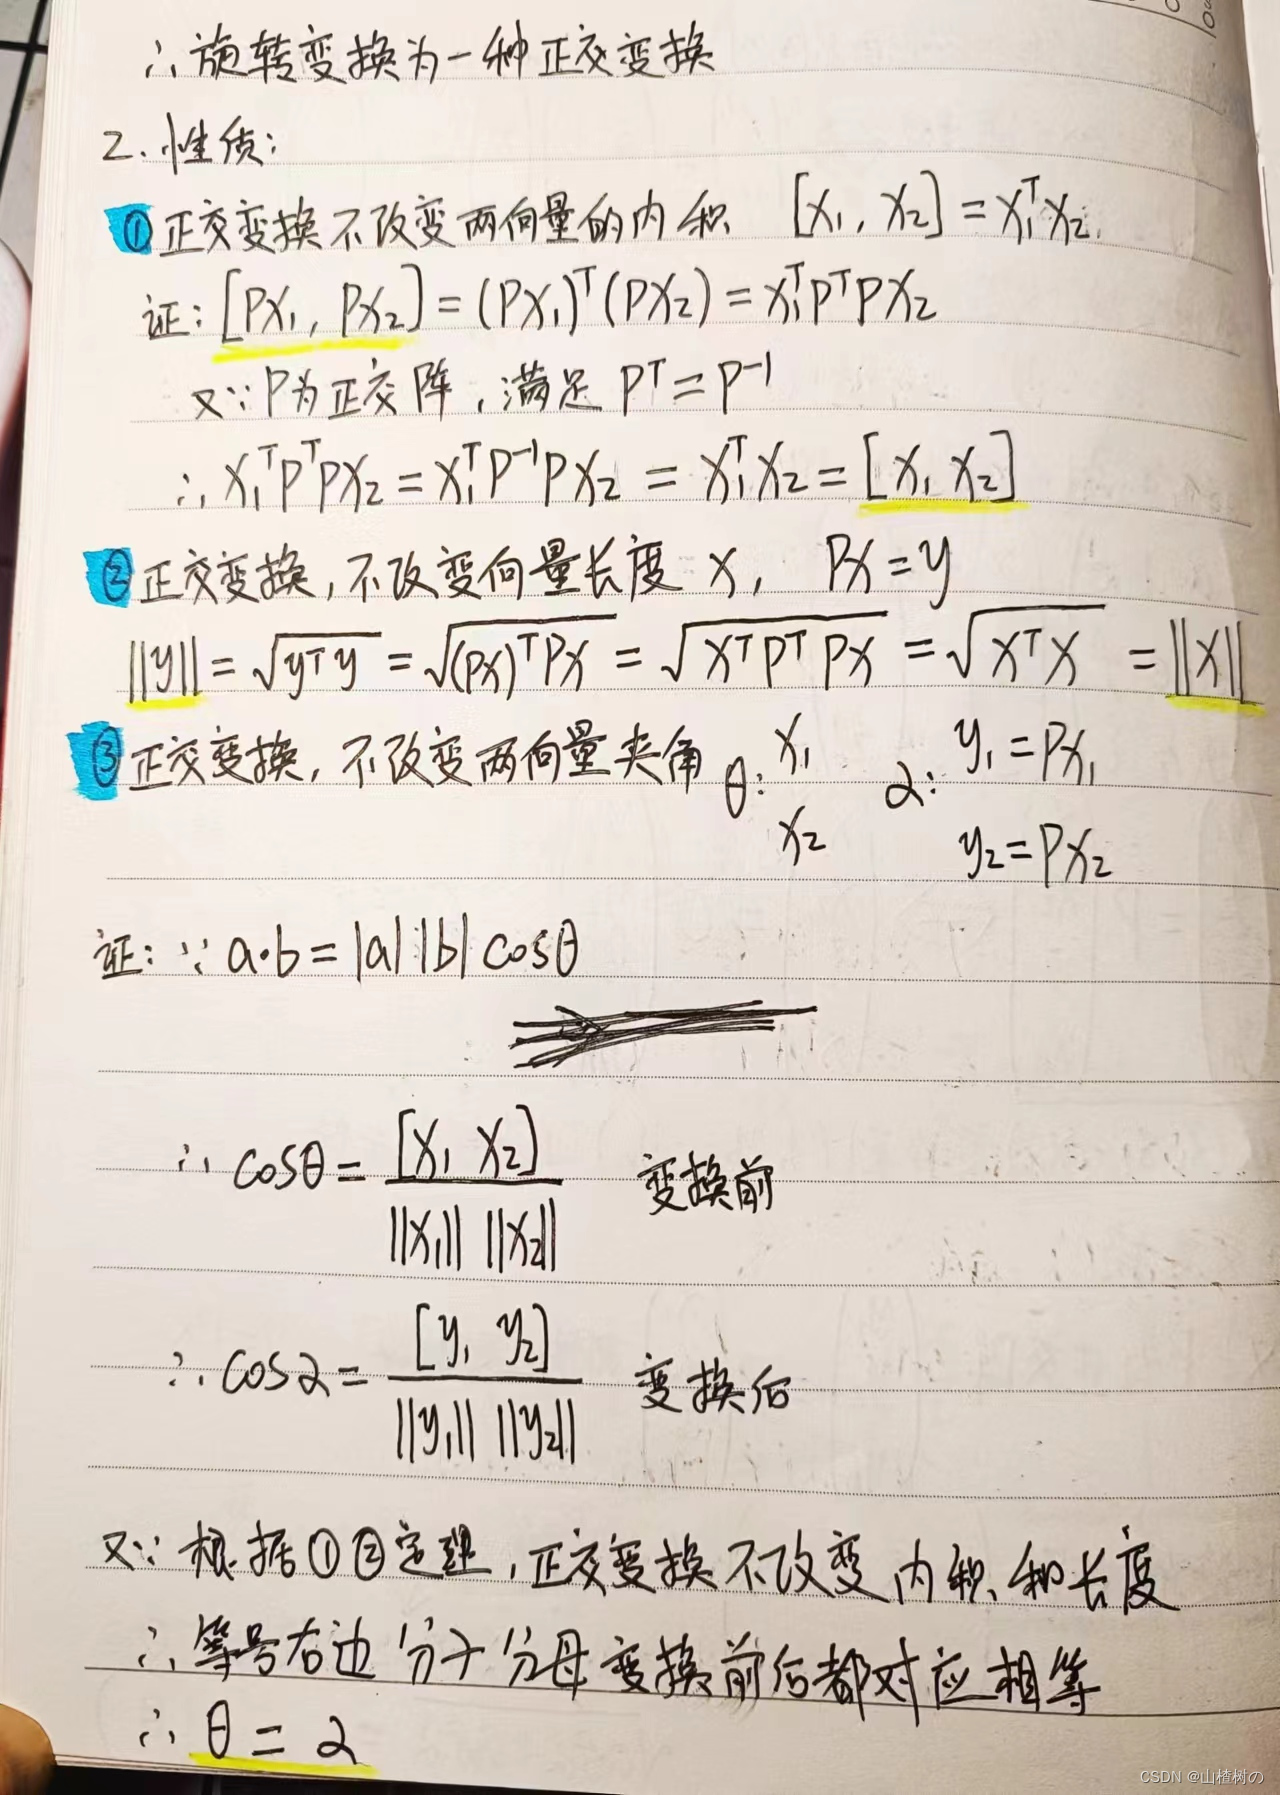 ∴ 旋转变换为一种正交变换
2. 性质:
① 正交变换不改变两向量的内积 [x₁, x₂] = x₁ᵀx₂.
证: [Px₁, Px₂] = (Px₁)ᵀ(Px₂) = x₁ᵀPᵀPx₂
又∵ P为正交阵, 满足 Pᵀ = P⁻¹
∴ x₁ᵀPᵀPx₂ = x₁ᵀP⁻¹Px₂ = x₁ᵀx₂ = [x₁ x₂]
② 正交变换, 不改变向量长度 x, Px = y
||y|| = √(yᵀy) = √((Px)ᵀPx) = √(xᵀPᵀPx) = √(xᵀx) = ||x||
③ 正交变换, 不改变两向量夹角 θ: x₁ x₂ α: y₁ = Px₁
y₂ = Px₂
证: ∵ a·b = |a||b| cosθ
∴ cosθ = [x₁ x₂] / ||x₁|| ||x₂|| 变换前
∴ cosα = [y₁ y₂] / ||y₁|| ||y₂|| 变换后
又∵ 根据①②定理, 正交变换不改变内积和长度
∴ 等号右边分子分母变换前后都对应相等
∴ θ = α
CSDN @山楂树の